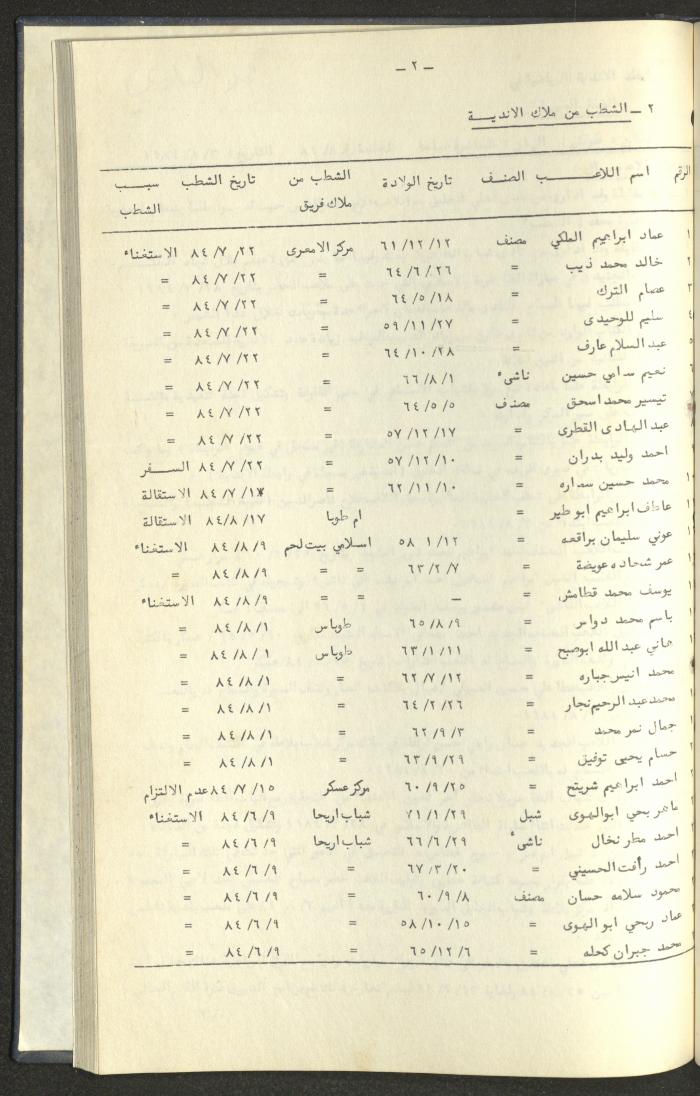 ـ ٢ ـ
٢ ـ الشطب من ملاك الاندية
الرقم اسم اللاعب الصنف تاريخ الولادة الشطب من ملاك فريق تاريخ الشطب سبب الشطب
١ عماد ابراهيم الملكي مصنف ٦١/١٢/١٢ مركز الامعرى ٨٤/٧/٢٢ الاستغناء
٢ خالد محمد ذيب = ٦٤/٦/٢٦ = ٨٤/٧/٢٢ =
٣ عصام الترك = ٦٤/٥/١٨ = ٨٤/٧/٢٢ =
٤ سليم للوحيدى = ٥٩/١١/٢٧ = ٨٤/٧/٢٢ =
٥ عبد السلام عارف = ٦٤/١٠/٢٨ = ٨٤/٧/٢٢ =
نعيم سامي حسين ناشىء ٦٦/٨/١ = ٨٤/٧/٢٢ =
تيسير محمد اسحق مصنف ٦٤/٥/٥ = ٨٤/٧/٢٢ =
عبد الهادى القطرى = ٥٧/١٢/١٧ = ٨٤/٧/٢٢ =
احمد وليد بدران = ٥٧/١٢/١٠ = ٨٤/٧/٢٢ السفر
محمد حسين سماره = ٦٢/١١/١٠ ٨٤/٧/ الاستقالة
عاطف ابراهيم ابو طير = ام طوبا ٨٤/٨/١٧ الاستقالة
عوني سليمان براقعه = ٥٨ ١/١٢ اسلامي بيت لحم ٨٤/٨/٩ الاستغناء
عمر شحاده عويضة = ٦٣/٢/٧ = = ٨٤/٨/٩ =
يوسف محمد قطامش = ـ = = ٨٤/٨/٩ الاستغناء
باسم محمد دواس = ٦٥/٨/٩ طوباس ٨٤/٨/١ =
هاني عبد الله ابوصبح = ٦٣/١/١١ طوباس ٨٤/٨/١ =
محمد انيس جباره = ٦٢/٧/١٢ = ٨٤/٨/١ =
محمد عبد الرحيم نجار = ٦٤/٢/٢٦ = ٨٤/٨/١ =
جمال نمر محمد = ٦٢/٩/٣ = ٨٤/٨/١ =
حسام يحيى توفيق = ٦٣/٩/٢٩ = ٨٤/٨/١ =
احمد ابراهيم شريتح = ٦٠/٩/٢٥ مركز عسكر ٨٤/٧/١٥ عدم الالتزام
ماهر بحي ابوالهوى شبل ٧١/١/٢٩ شباب اريحا ٨٤/٦/٩ الاستغناء
احمد مطر نخال ناشىء ٦٦/٦/٢٩ شباب اريحا ٨٤/٦/٩ =
احمد رأفت الحسيني = ٦٧/٣/٢٠ = ٨٤/٦/٩ =
محمود سلامه حسان مصنف ٦٠/٩/٨ = ٨٤/٦/٩ =
عماد ربحي ابو الهوى = ٥٨/١٠/١٥ = ٨٤/٦/٩ =
محمد جبران كحله = ٦٥/١٢/٦ = ٨٤/٦/٩ =